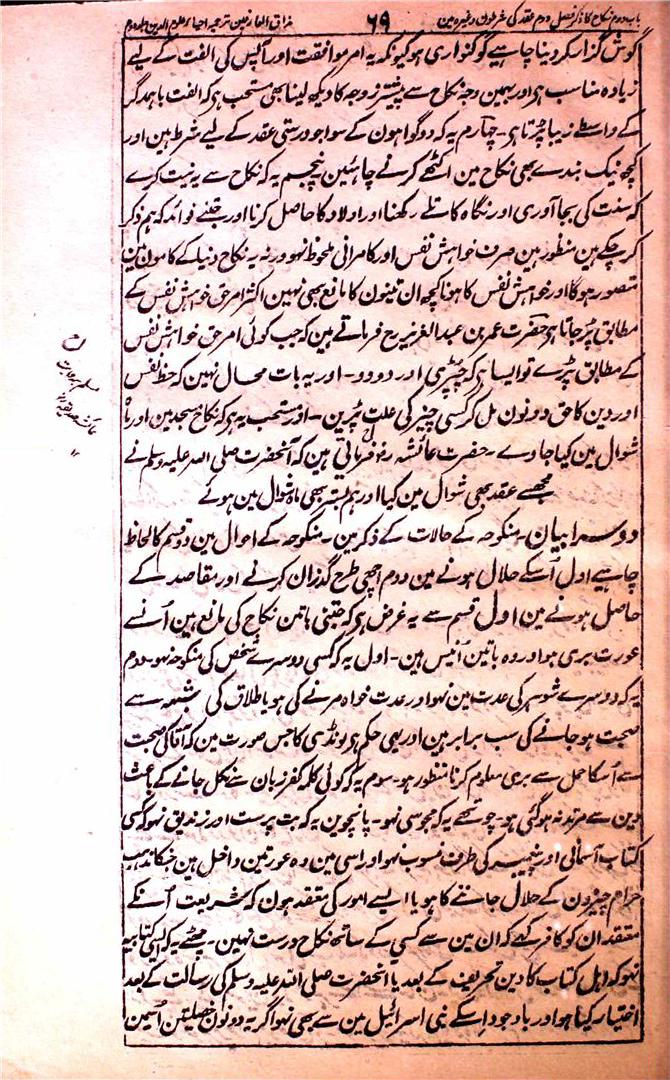 باب دوم نکاح کا ذکر فصل دوم عقد کی شرطون وغیرہ مین
۶۹
مذاق العارفین ترجمہ احیاء علوم الدین جلد دوم
گوش گزار کر دینا چاہیے گو کنواری ہو کیونکہ یہ امر موافقت اور آپس کی الفت کے لیے
زیادہ مناسب ہی اور یہین وجہ نکاح سے پیشتر زوجہ کا دیکھ لینا بھی مستحب ہی کہ الفت باہمدگر
کے واسطے زیبا پڑتا ہی۔ چہارم یہ کہ دو گواہون کے سوا جو درستی عقد کے لیے شرط ہین اور
کچھ نیک بندے بھی نکاح مین اکٹھے کرنے چاہئین پنجم یہ کہ نکاح سے یہ نیت کرے
کہ سنت کی بجا آوری اور نگاہ کا تلے رکھنا اور اولاد کا حاصل کرنا اور جتنے فوائد کہ ہم ذکر
کر چکے ہین منظور ہین صرف خواہش نفس اور کامرانی ملحوظ نہو ورنہ یہ نکاح دنیا کے کامون مین
متصور ہوگا اور خواہش نفس کا ہونا کچھ ان نیتون کا مانع بھی نہین اکثر امر حق خواہش نفس کے
مطابق پڑ جاتا ہی حضرت عمر بن عبد العزیز رح فرماتے ہین کہ جب کوئی امر حق خواہش نفس
کے مطابق پڑے تو ایسا ہی کہ چپڑی اور دو دو۔ اور یہ بات محال نہین کہ حظ نفس
اور دین کا حق دونون مل کر کسی چیز کی علت پڑین۔ اور مستحب یہ ہی کہ نکاح مسجد مین اور ماہ
شوال مین کیا جاوے۔ حضرت عائشہ رض فرماتی ہین کہ آنحضرت صلی اللہ علیہ وسلم نے
مجھسے عقد بھی شوال مین کیا اور ہم بستر بھی ماہ شوال مین ہوئے
دوسرا بیان۔ منکوحہ کے حالات کے ذکر مین۔ منکوحہ کے احوال مین دو قسم کا لحاظ
چاہیے اول اُسکے حلال ہونے مین دوم اچھی طرح گذران کرنے اور مقاصد کے
حاصل ہونے مین اول قسم سے یہ غرض ہی کہ جتنی باتین نکاح کی مانع ہین اُنسے
عورت بری ہو اور وہ باتین اُنیس ہین۔ اول یہ کہ کسی دوسرے شخص کی منکوحہ نہو۔ دوم
یہ کہ دوسرے شوہر کی عدت مین نہو اور عدت خواہ مرنے کی ہو یا طلاق کی شبہہ سے
صحبت ہو جانے کی سب برابر ہین اور یہی حکم ہی لونڈی کا جس صورت مین کہ آقا کی صحبت
سے اُسکا حمل سے بری معلوم کرنا منظور ہو۔ سوم یہ کہ کوئی کلمہ کفر زبان سے نکل جانے کے باعث
دین سے مرتد نہ ہو گئی ہو۔ چوتھے یہ کہ مجوسی نہو۔ پانچوین یہ کہ بت پرست اور زندیق نہو کہ کسی
کتاب آسمانی اور پیغمبر کی طرف منسوب نہو اور اسی مین وہ عورتین داخل ہین جنکا مذہب
حرام چیزون کے حلال جاننے کا ہو یا ایسے امور کی معتقد ہون کہ شریعت اُنکے
معتقدان کو کافر کہے کہ ان مین سے کسی کے ساتھ نکاح درست نہین۔ چھٹے یہ کہ ایسی کتابیہ
نہو کہ اہل کتاب کا دین تحریف کے بعد یا آنحضرت صلی اللہ علیہ وسلم کی رسالت کے بعد
اختیار کیا ہو اور باوجود اسکے بنی اسرائیل مین سے بھی نہو اگر یہ دونون خصلتین اُسمین